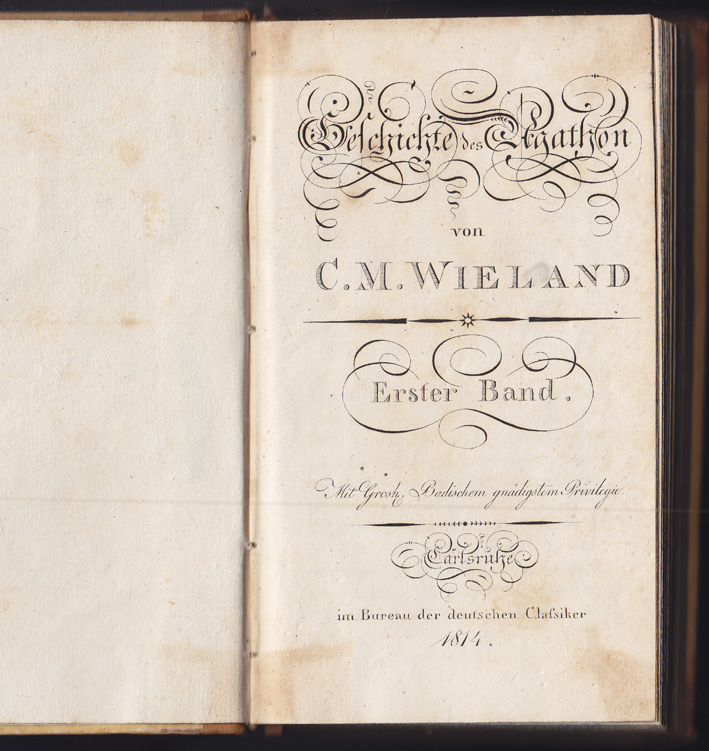 Geschichte des Agathon
von
C. M. WIELAND
Erster Band.
Mit Grosh. Badischem gnädigstem Privilegio.
Carlsruhe
im Bureau der deutschen Claſsiker
1814.